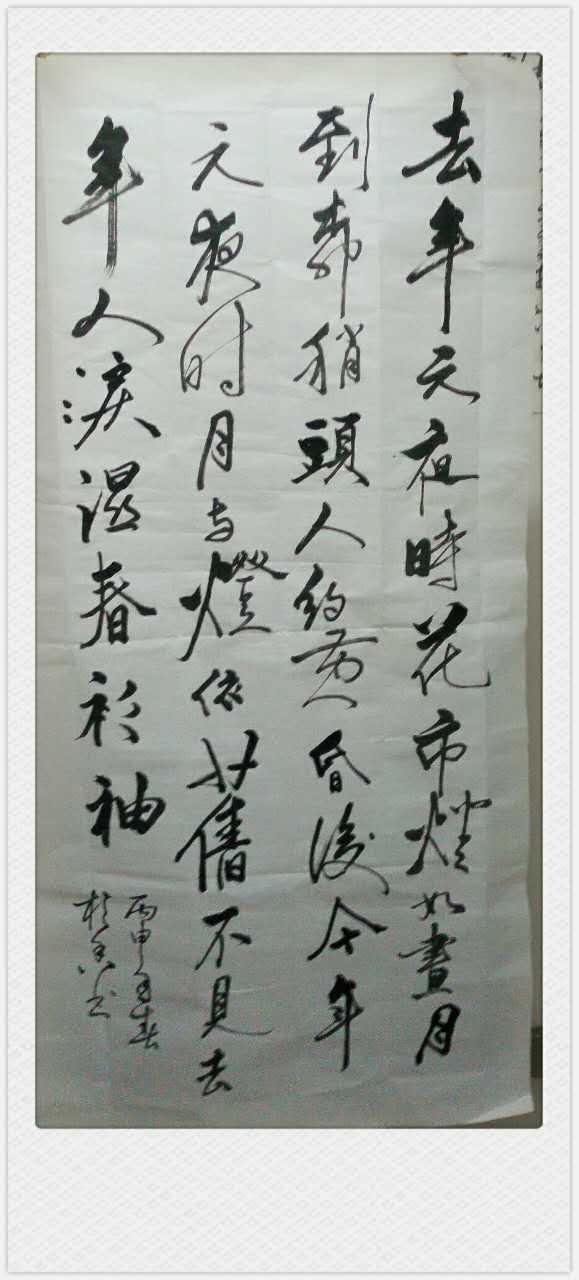 去年元夜時花市燈如晝月
到稍頭人約黃昏後今年
元夜时月与燈依舊不見去
年人淚濕春衫袖
丙申年春